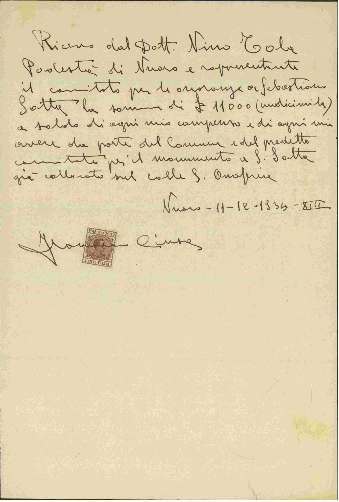 Ricevo dal Dott. Nino Tola
Podestà di Nuoro e rappresentante
il comitato per le onoranze a Sebastiano
Satta la somma di £ 11000 (undicimila)
a saldo di ogni mio compenso e di ogni mio
avere da parte del Comune e del predetto
comitato per il monumento a S. Satta
già collocato sul colle S. Onofrio
Nuoro - 11 - 12 - 1934 - XIII
Francesco Ciusa